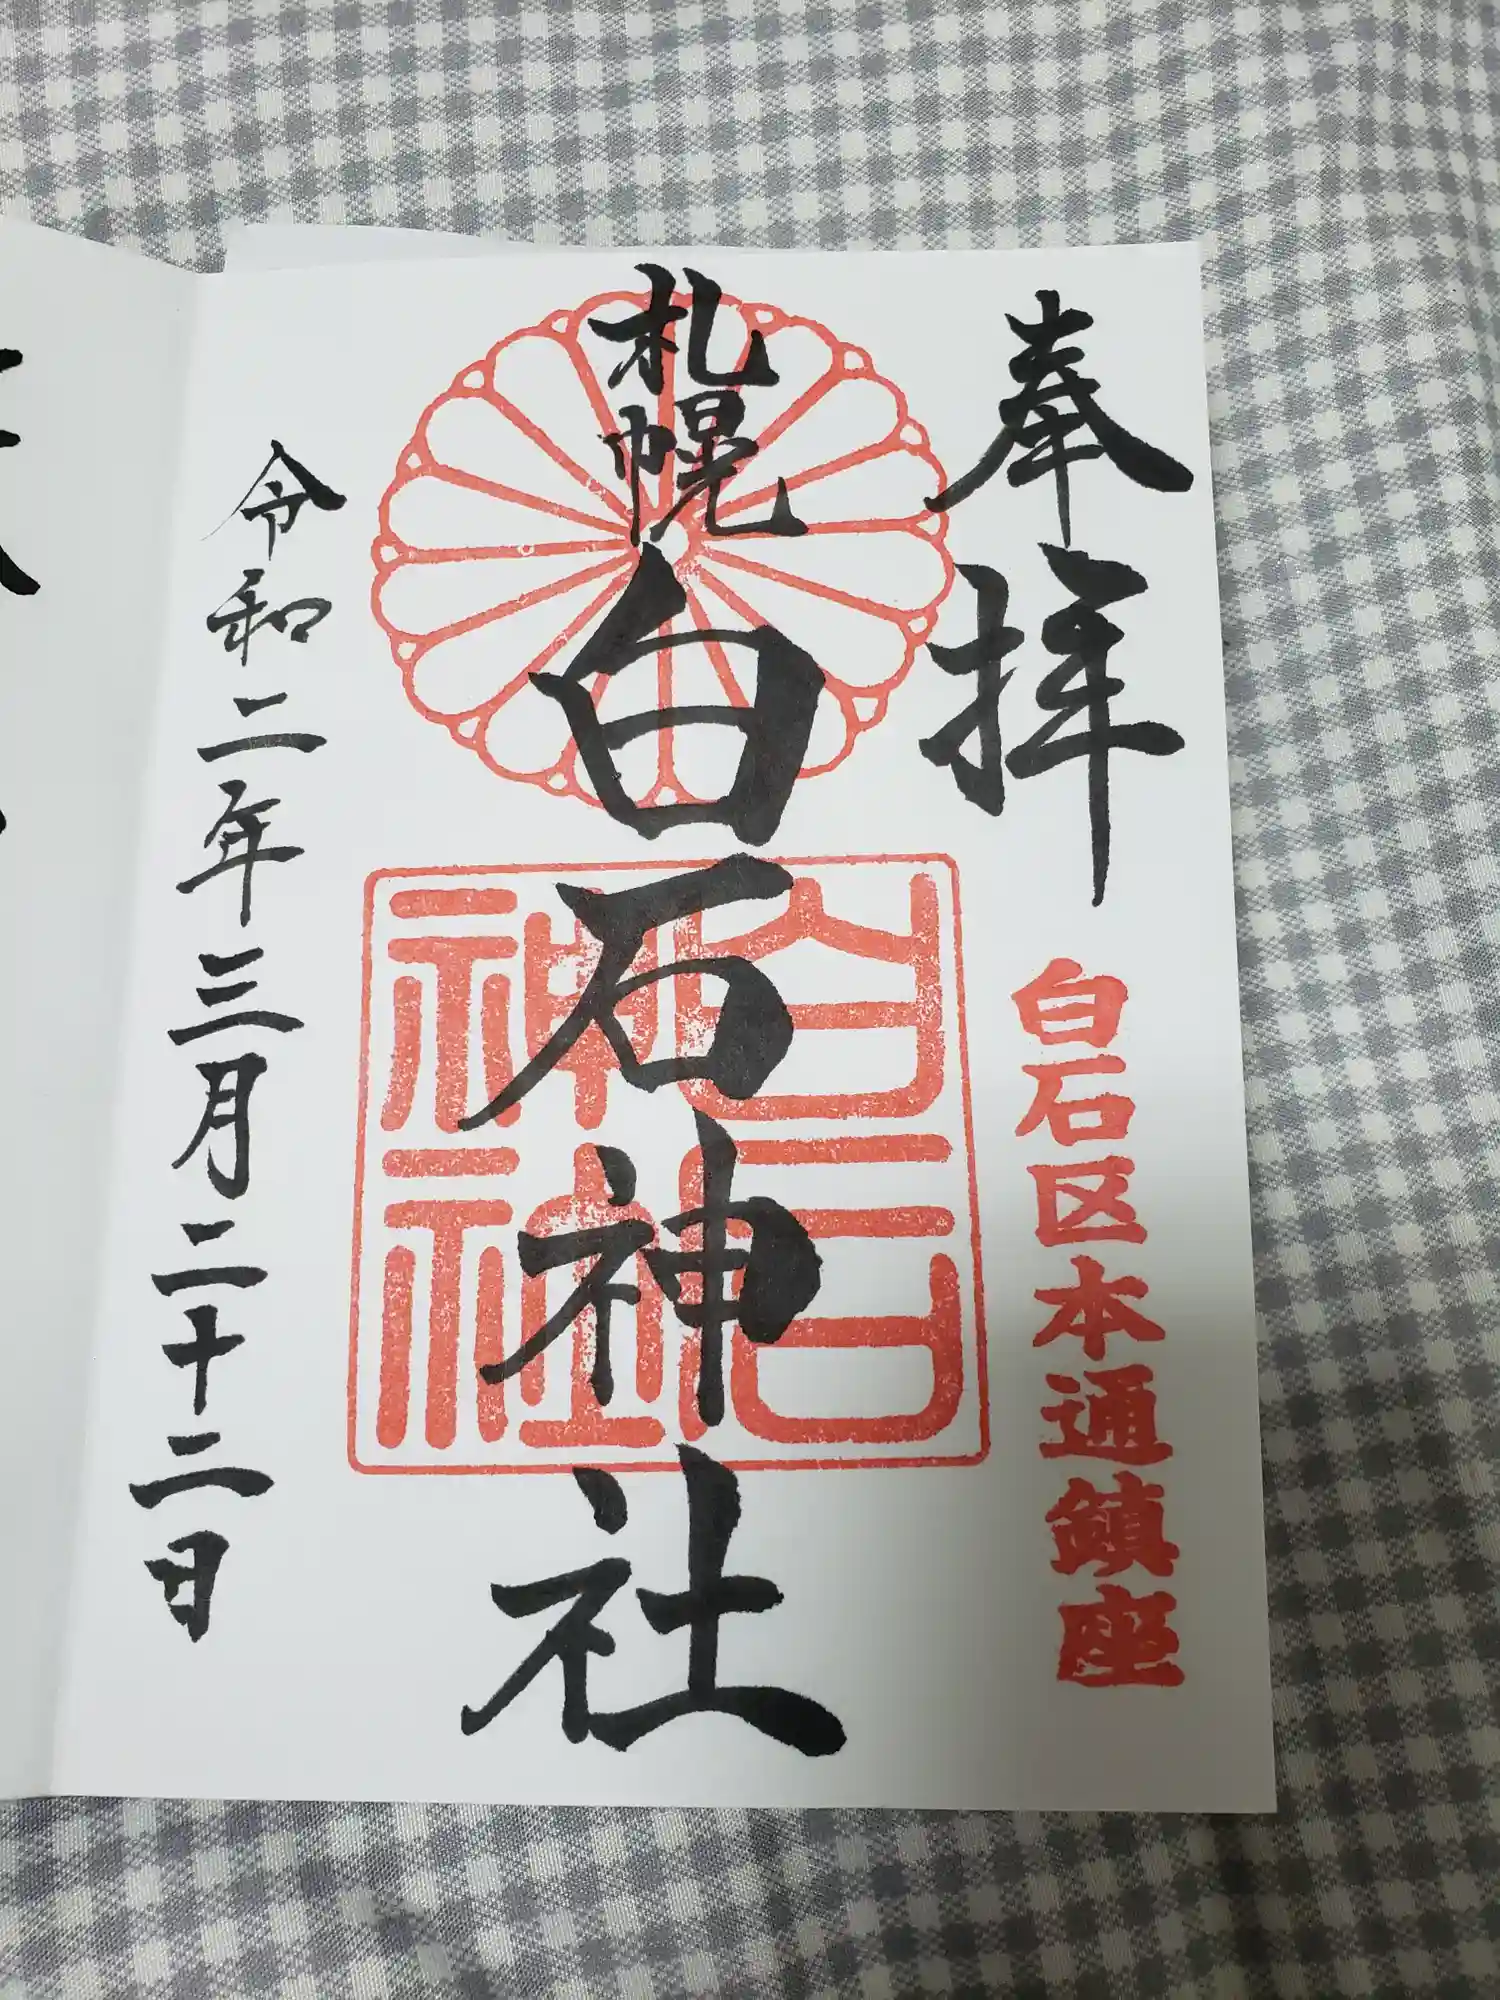 奉拝
白石区本通鎮座
札幌白石神社
白石
神社
令和二年三月二十二日